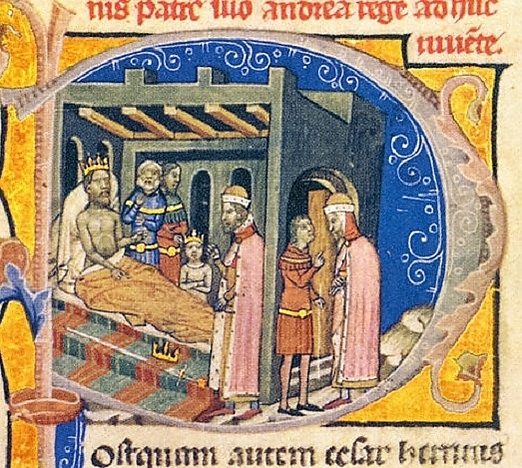 nis patre suo andrea rege adhuc
iuuēte.
Ostquam autem cesar henricus